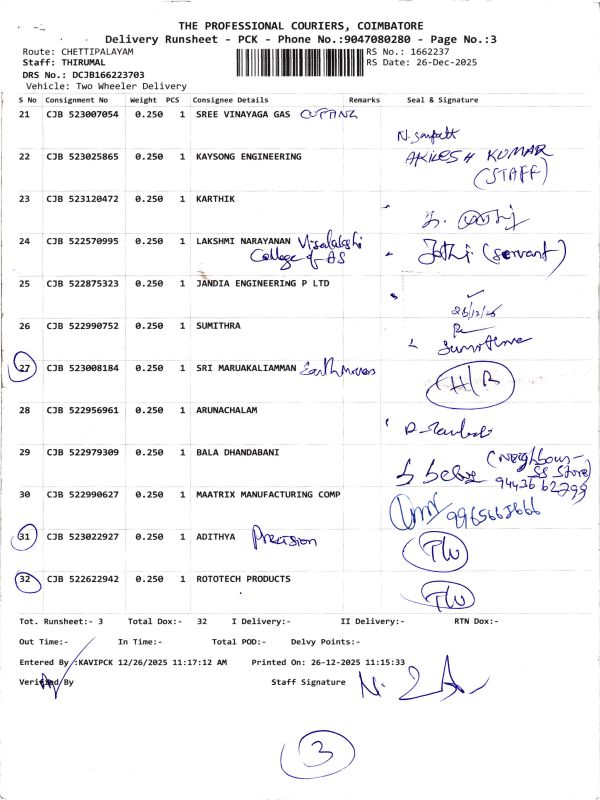 THE PROFESSIONAL COURIERS, COIMBATORE
Delivery Runsheet - PCK - Phone No.:9047080280 - Page No.:3
Route: CHETTIPALAYAM RS No.: 1662237
Staff: THIRUMAL RS Date: 26-Dec-2025
DRS No.: DCJB166223703
Vehicle: Two Wheeler Delivery
S No Consignment No Weight PCS Consignee Details Remarks Seal & Signature
21 CJB 523007054 0.250 1 SREE VINAYAGA GAS CUTTING
22 CJB 523025865 0.250 1 KAYSONG ENGINEERING AKILESH KUMAR
(STAFF)
23 CJB 523120472 0.250 1 KARTHIK
24 CJB 522570995 0.250 1 LAKSHMI NARAYANAN Visalalakshi Jothi (servant)
College of AS
25 CJB 522875323 0.250 1 JANDIA ENGINEERING P LTD
26 CJB 522990752 0.250 1 SUMITHRA
27 CJB 523008184 0.250 1 SRI MARUAKALIAMMAN Earth Movers H/R
28 CJB 522956961 0.250 1 ARUNACHALAM
29 CJB 522979309 0.250 1 BALA DHANDABANI (Neighbour-
SS Store)
30 CJB 522990627 0.250 1 MAATRIX MANUFACTURING COMP
31 CJB 523022927 0.250 1 ADITHYA Precision
32 CJB 522622942 0.250 1 ROTOTECH PRODUCTS
Tot. Runsheet:- 3 Total Dox:- 32 I Delivery:- II Delivery:- RTN Dox:-
Out Time:- In Time:- Total POD:- Delvy Points:-
Entered By :KAVIPCK 12/26/2025 11:17:12 AM Printed On: 26-12-2025 11:15:33
Verified By Staff Signature
3